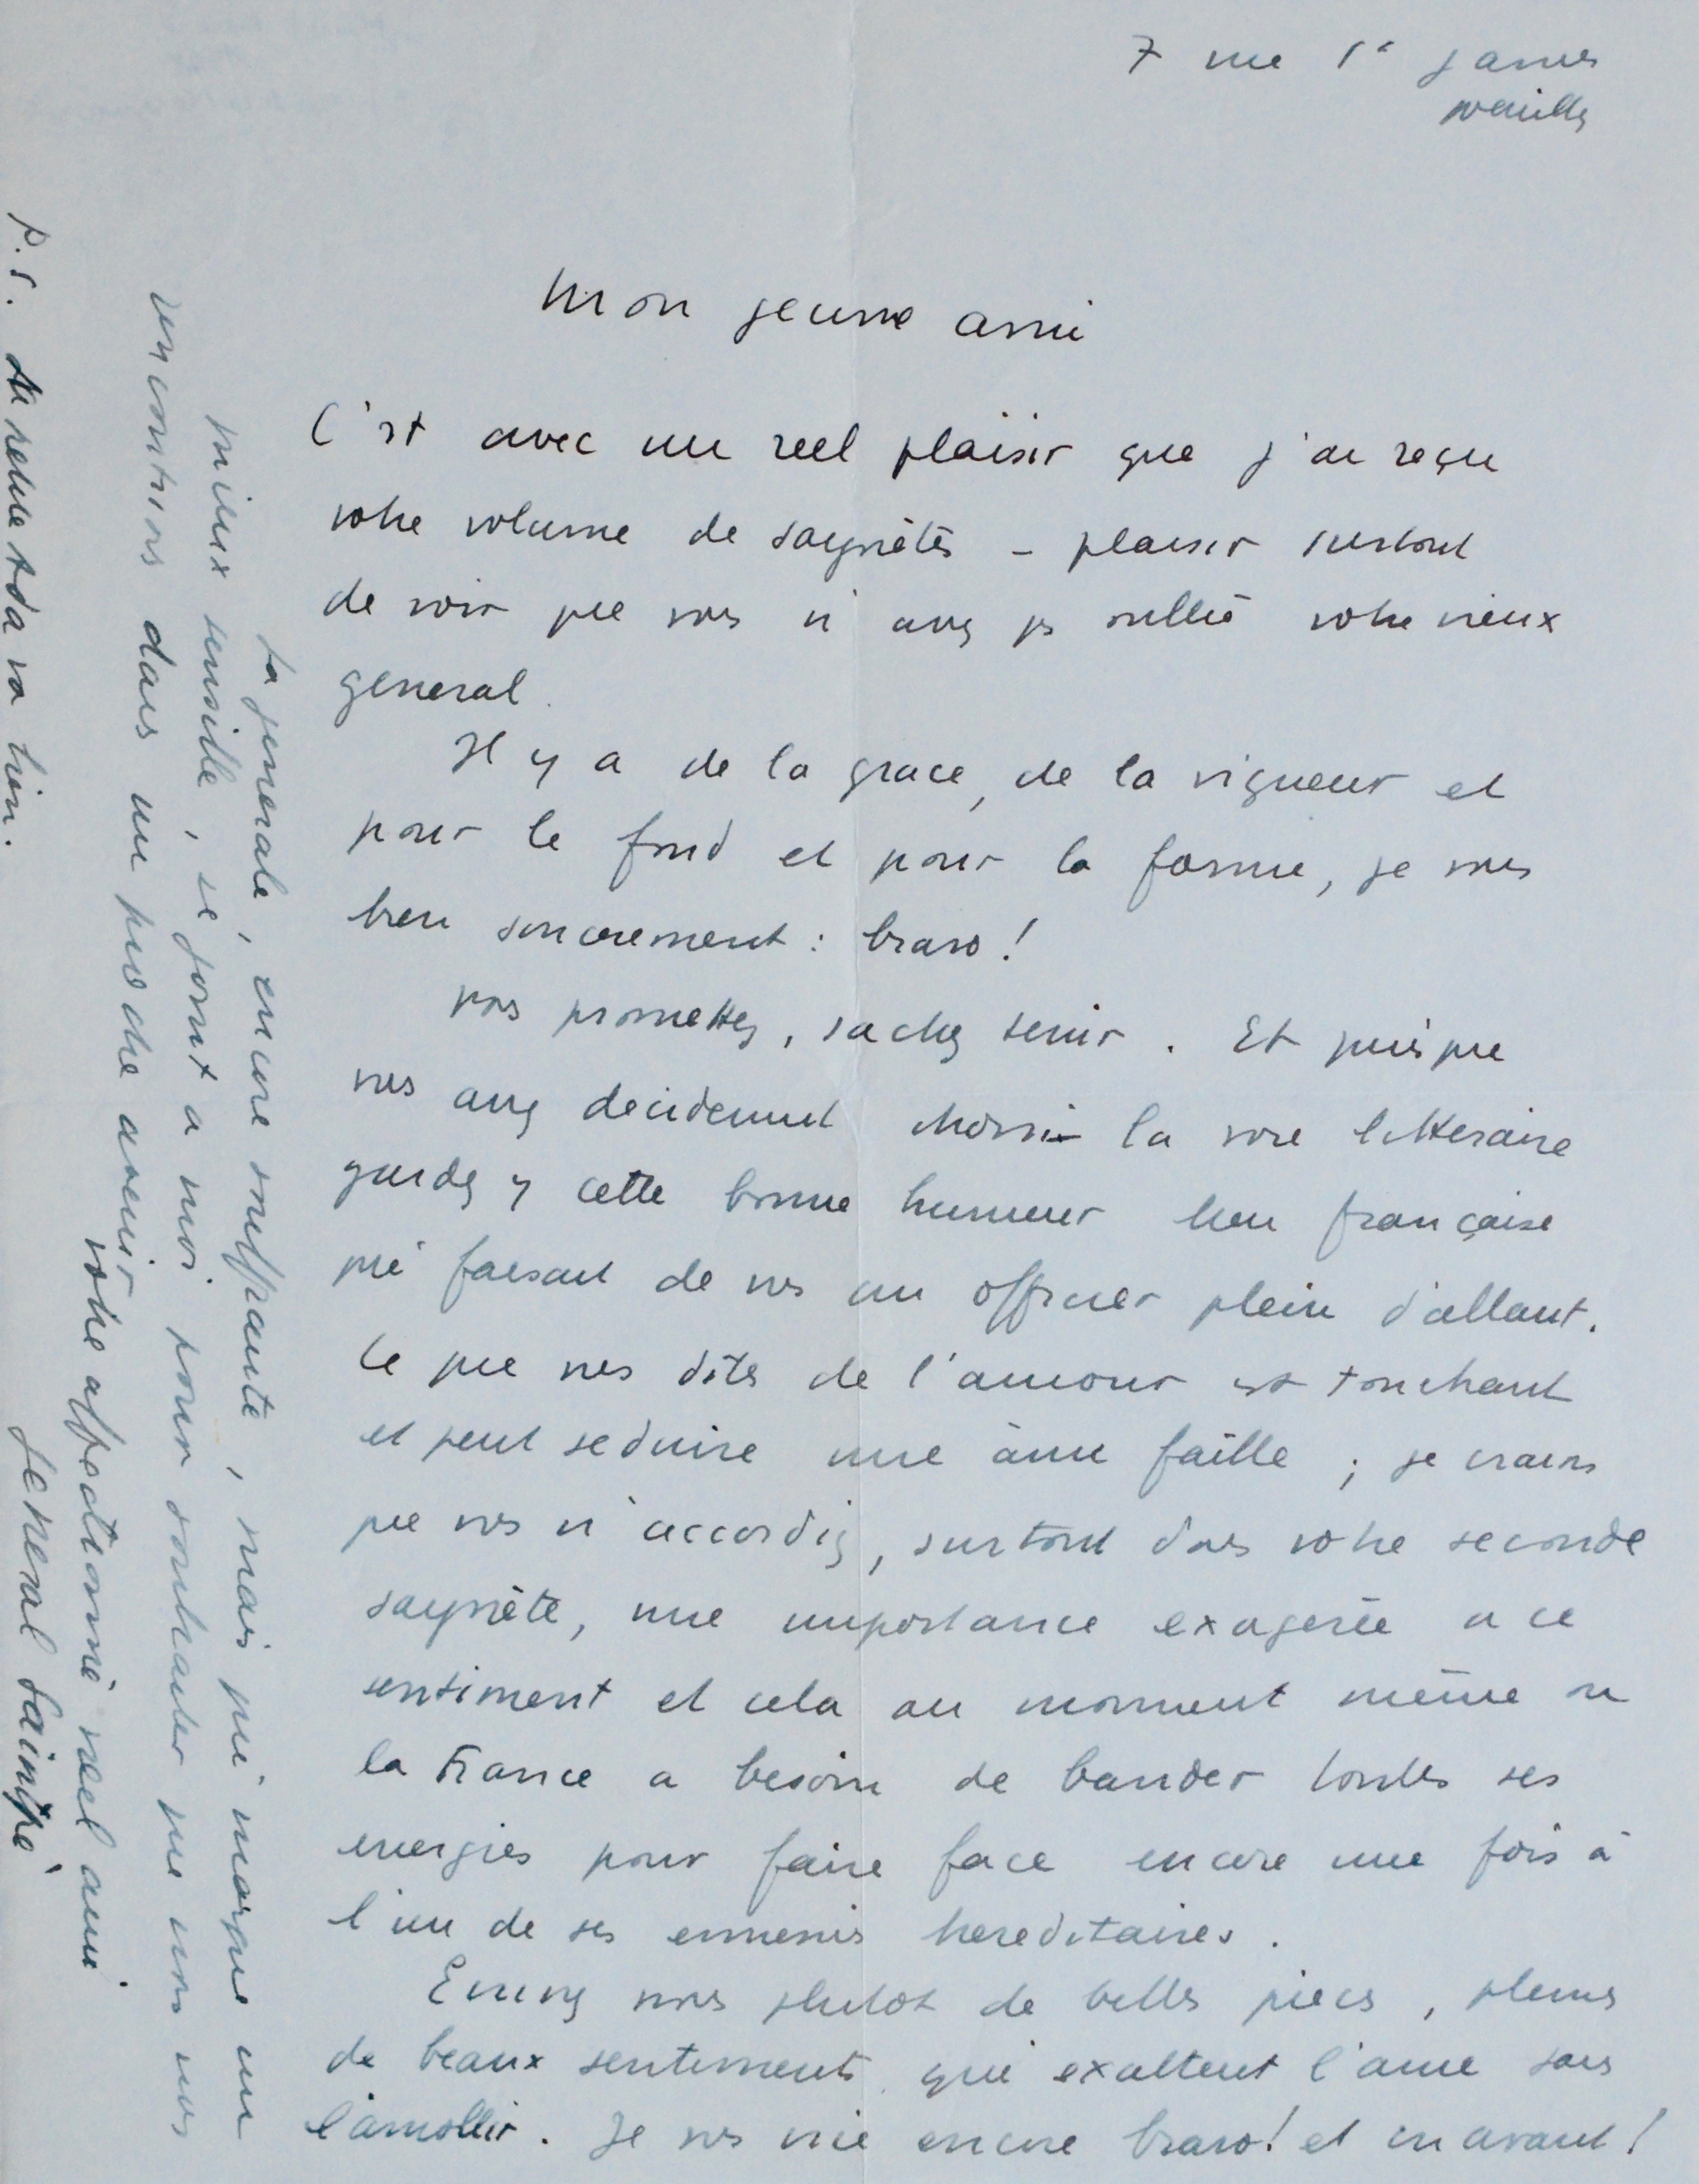 7 rue St James
Neuilly
Mon jeune ami
C'est avec un reel plaisir que j'ai reçu
votre volume de saynètès – plaisir surtout
de voir que vous n'avez ps oublié votre vieux
general.
Il y a de la grace, de la vigueur et
pour le fond et pour la forme, je vous
bien sincerement : bravo !
Vous promettez, sachez tenir. Et puisque
vous avez decidement choisi la voie litteraire
gardez y cette bonne humeur bien française
qui faisait de vous un officier plein d'allant.
Ce que vous dites de l'amour est touchant
et peut seduire une âme faible ; je crains
que vous n'accordiez, surtout dans votre seconde
saynète, une importance exagerée a ce
sentiment et cela au moment même ou
la France a besoin de bander toutes ses
energies pour faire face encore une fois à
l'un de ses ennemis hereditaires.
Ecrivez nous plutot de belles pieces, pleines
de beaux sentiments qui exaltent l'ame sans
l'amollir. Je vous crie encore bravo ! et en avant !
La generale, encore souffrante, mais qui marque un
mieux sensible, se joint a moi pour souhaiter que nous vous
rencontrions dans un proche avenir
votre affectionné vieil ami.
General Saimpré
P.S. Ma petite Ada va bien.